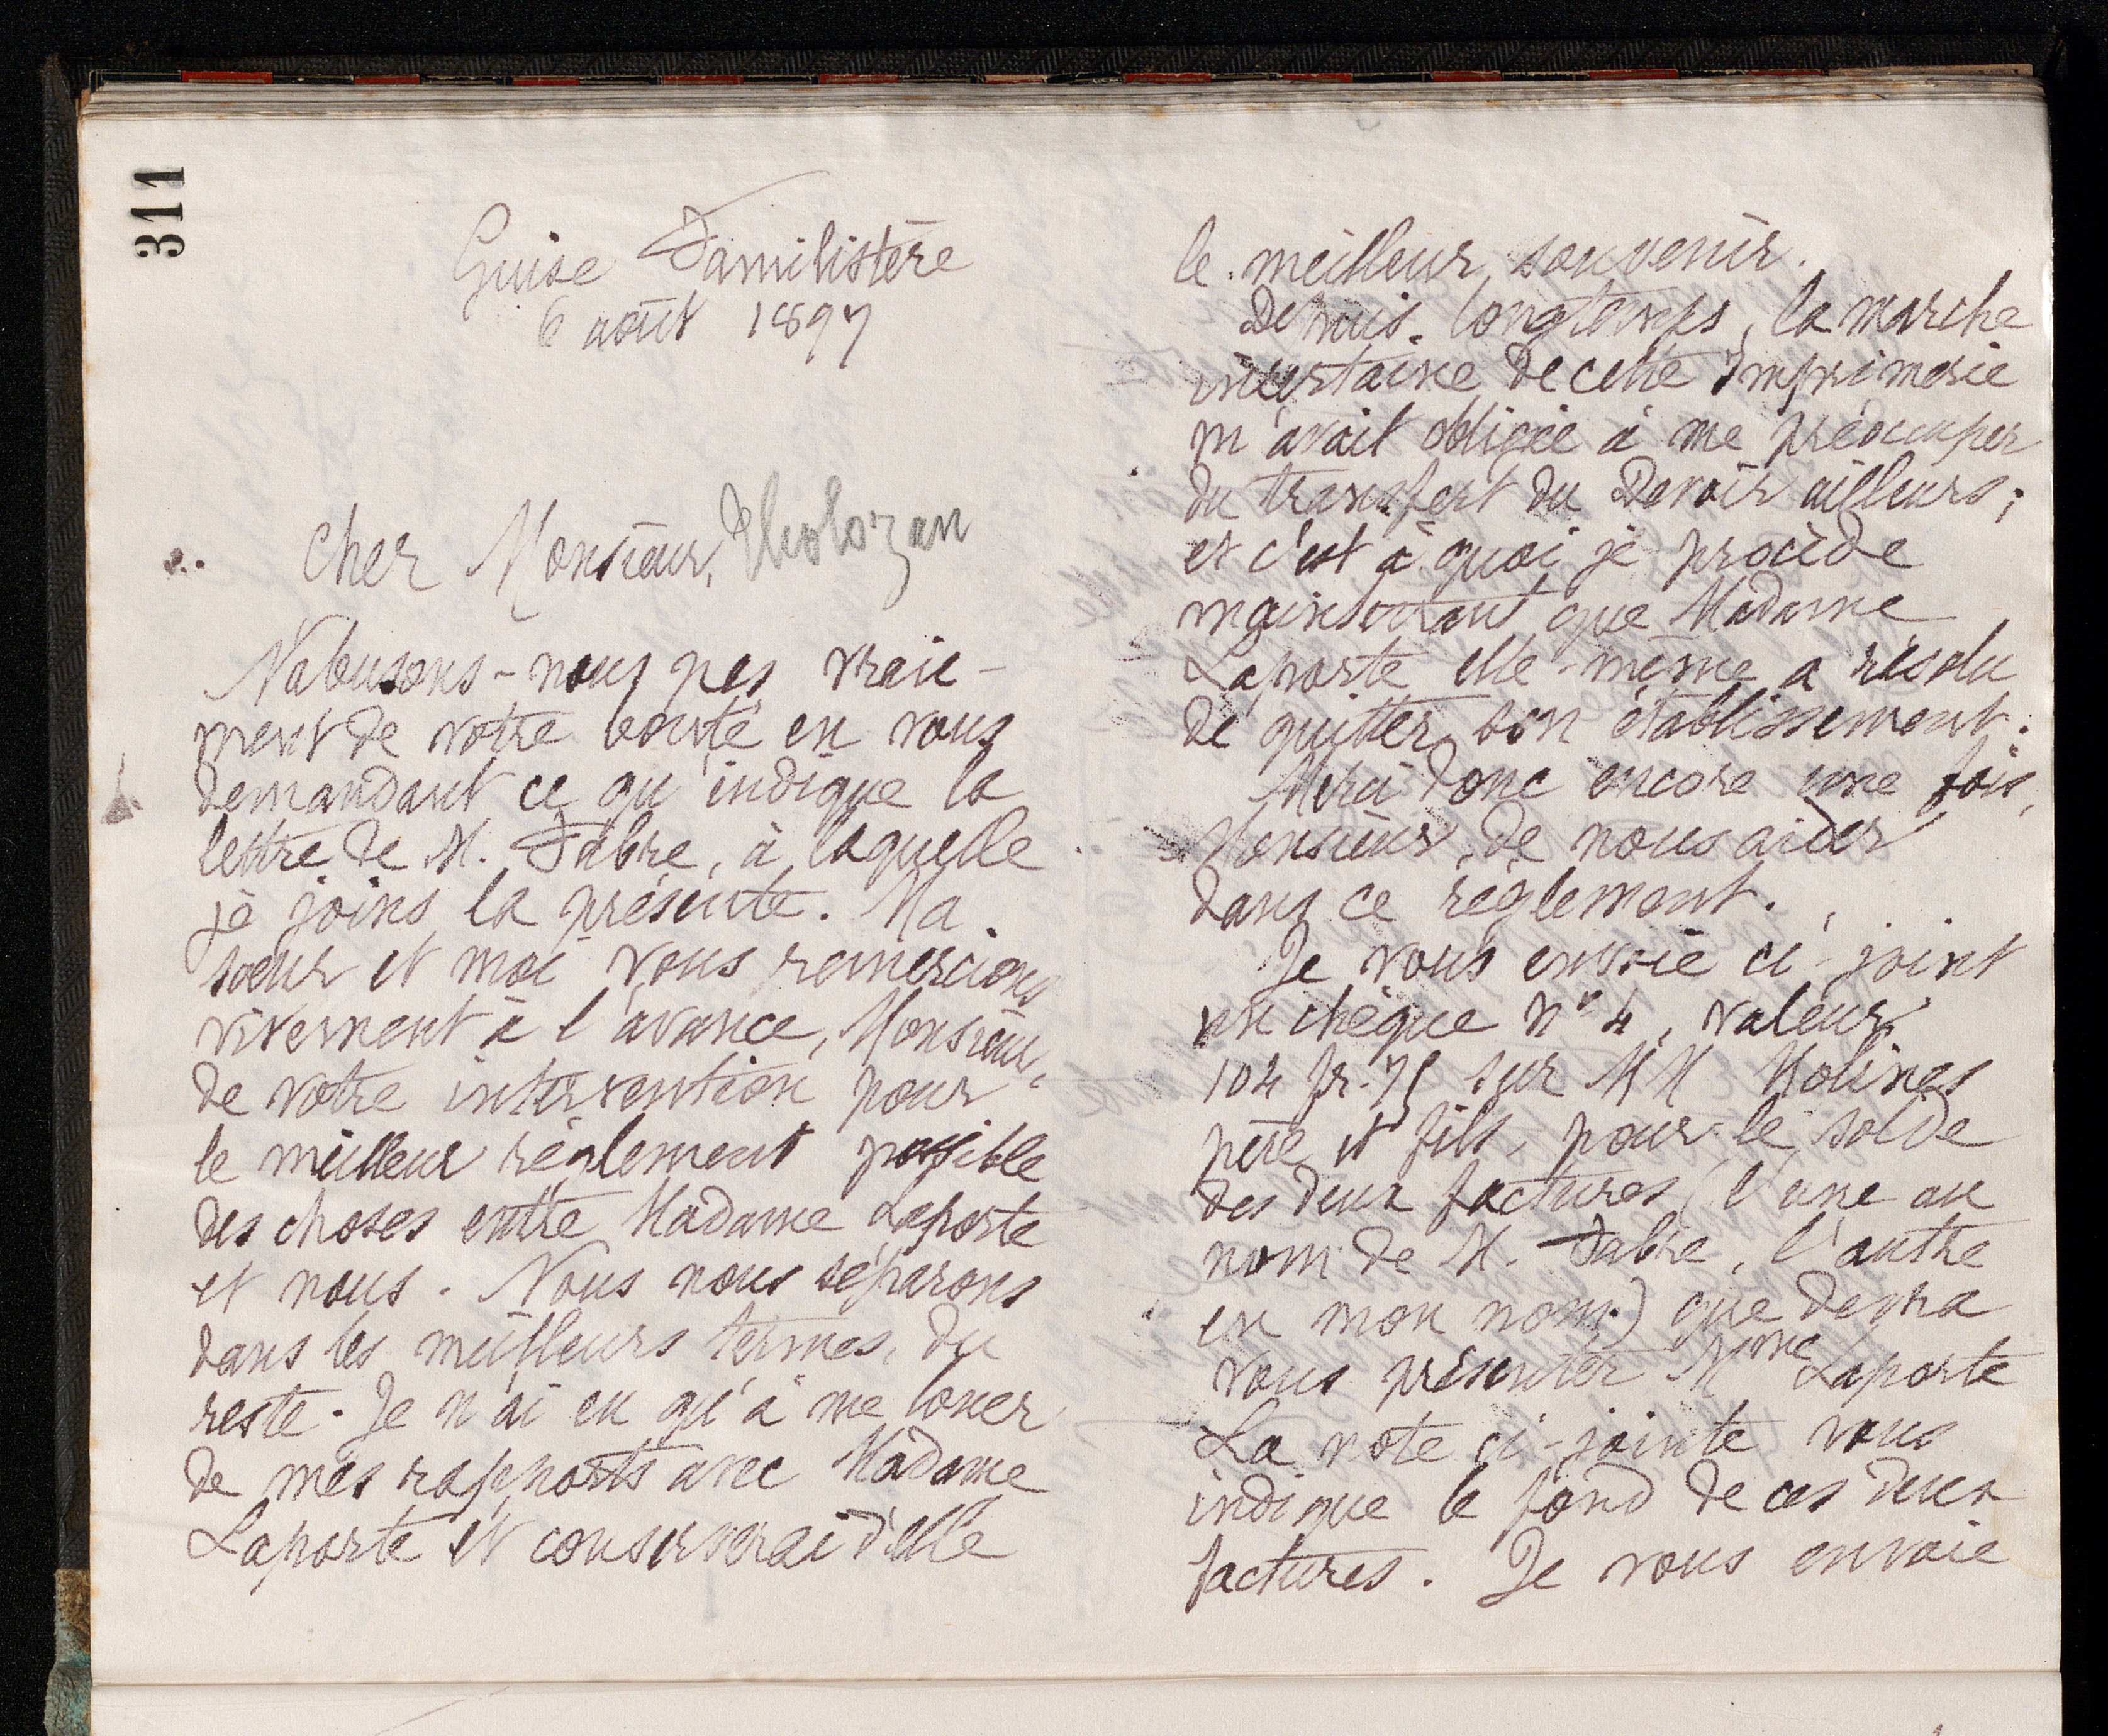 311
Guise Familistère
6 août 1897
Cher Monsieur, Tholozan
N'abusons-nous pas vrai-
ment de votre bonté en vous
demandant ce qu'indique la
lettre de M. Fabre, à laquelle
je joins la présente. Ma
sœur et moi vous remercions
vivement à l'avance, Monsieur,
de votre intervention pour
le meilleur règlement possible
des choses entre Madame Laporte
et nous. Nous nous séparons
dans les meilleurs termes, du
reste. Je n'ai eu qu'à me louer
de mes rapports avec Madame
Laporte et conserverai d'elle
le meilleur souvenir.
Depuis longtemps, la marche
incertaine de cette Imprimerie
m'avait obligée à me préoccuper
du transfert du Devoir ailleurs;
et c'est à quoi je procède
maintenant que Madame
Laporte elle-même a résolu
de quitter son établissement.
Merci donc encore une fois,
Monsieur, de nous aider
dans ce règlement.
Je vous envoie ci-joint
un chèque n° 4, valeur
104 fr. 75 sur MM Molines
père et fils, pour le solde
des deux factures (l'une au
nom de M. Fabre, l'autre
en mon nom) que devra
vous présenter Mme Laporte
La note ci-jointe vous
indique le fond de ces deux
factures. Je vous envoie